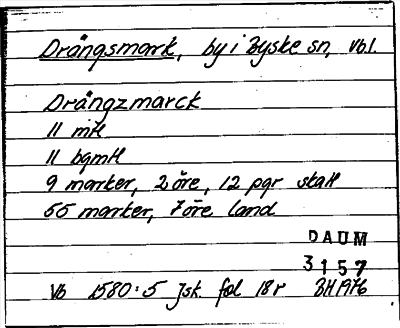 Drängsmark, by i Byske sn, Vb.l.
Drängzmarck
11 mtl
11 bgmtl
9 marker, 2 öre, 12 pgr skatt
55 marker, 7 öre land
DAUM
3157
Vb 1580:5 Jsk. fol 18r BH 1976